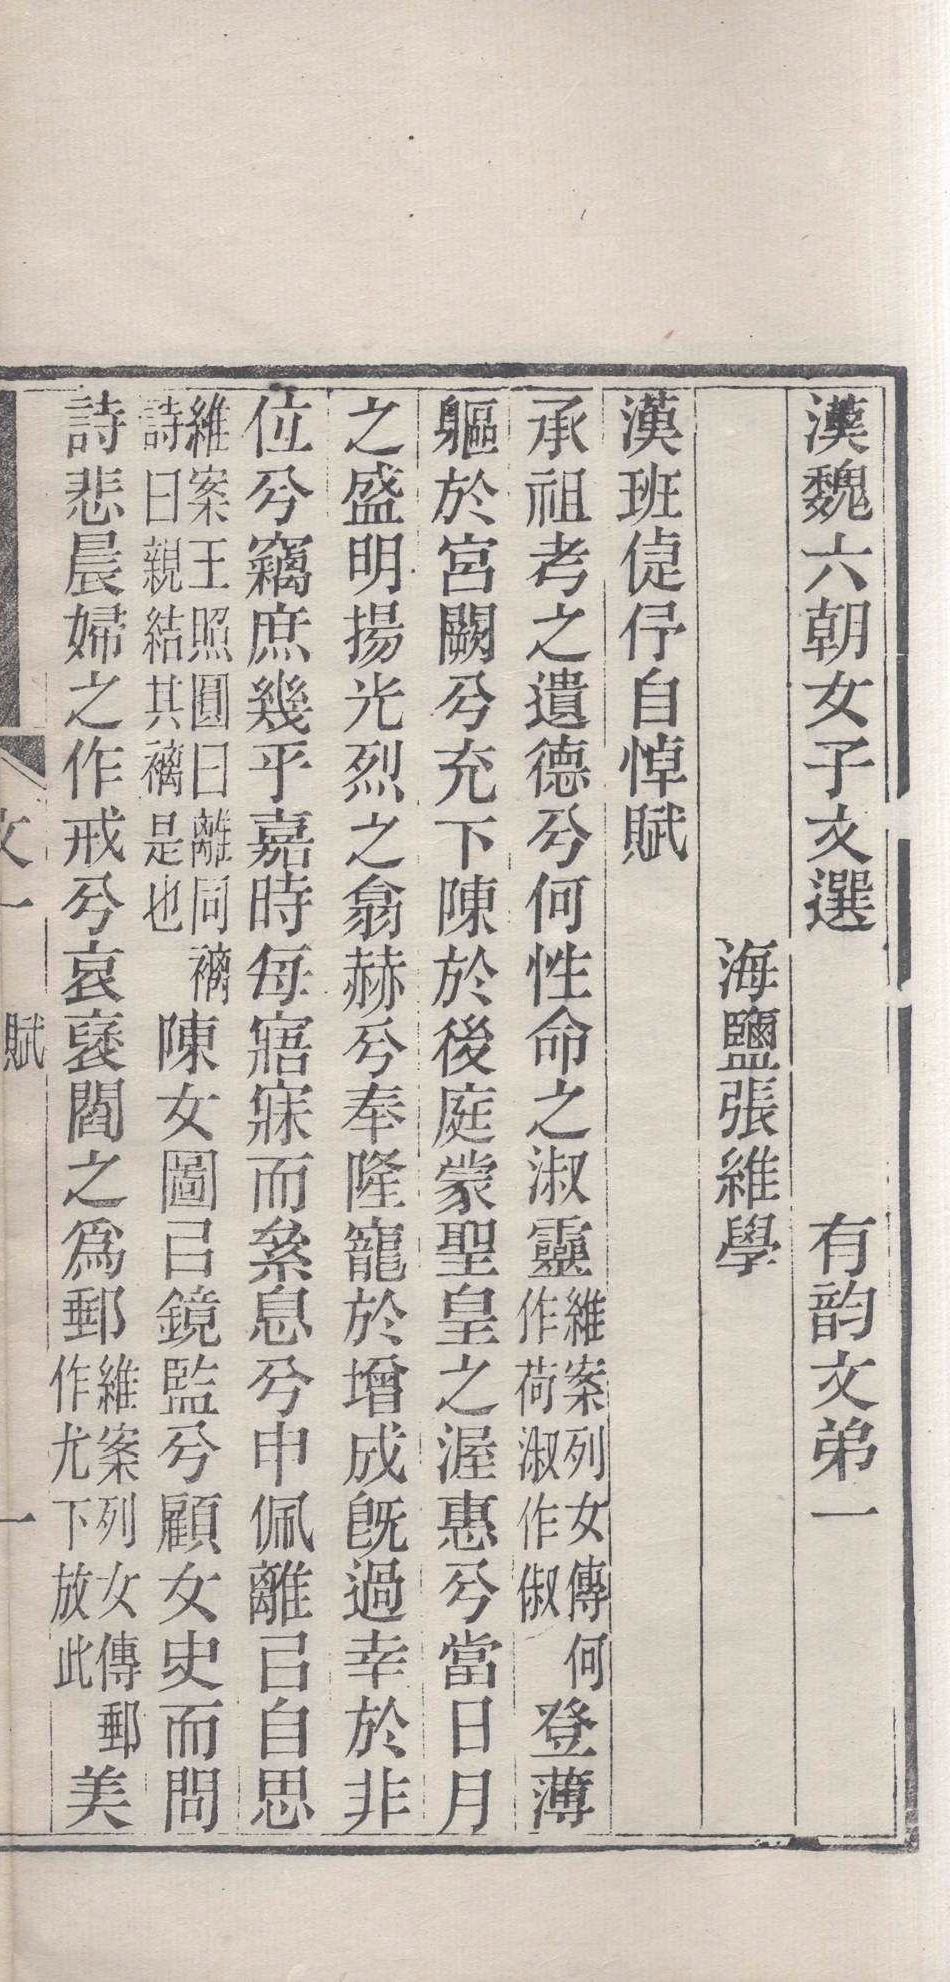 漢魏六朝女子文選　有韵文弟一
海鹽張維學
漢班倢伃自悼賦
承祖考之遺德兮何性命之淑靈維案列女傳何作荷淑作俶登薄
軀於宮闕兮充下陳於後庭蒙聖皇之渥惠兮當日月
之盛明揚光烈之翕赫兮奉隆寵於增成旣過幸於非
位兮竊庶幾乎嘉時每寤寐而絫息兮申佩離㠯自思
維案王照圓曰離同褵詩曰親結其褵是也陳女圖㠯鏡監兮顧女史而問
詩悲晨婦之作戒兮哀襃閻之爲郵維案列女傳郵作尤下放此美
文一　賦　一